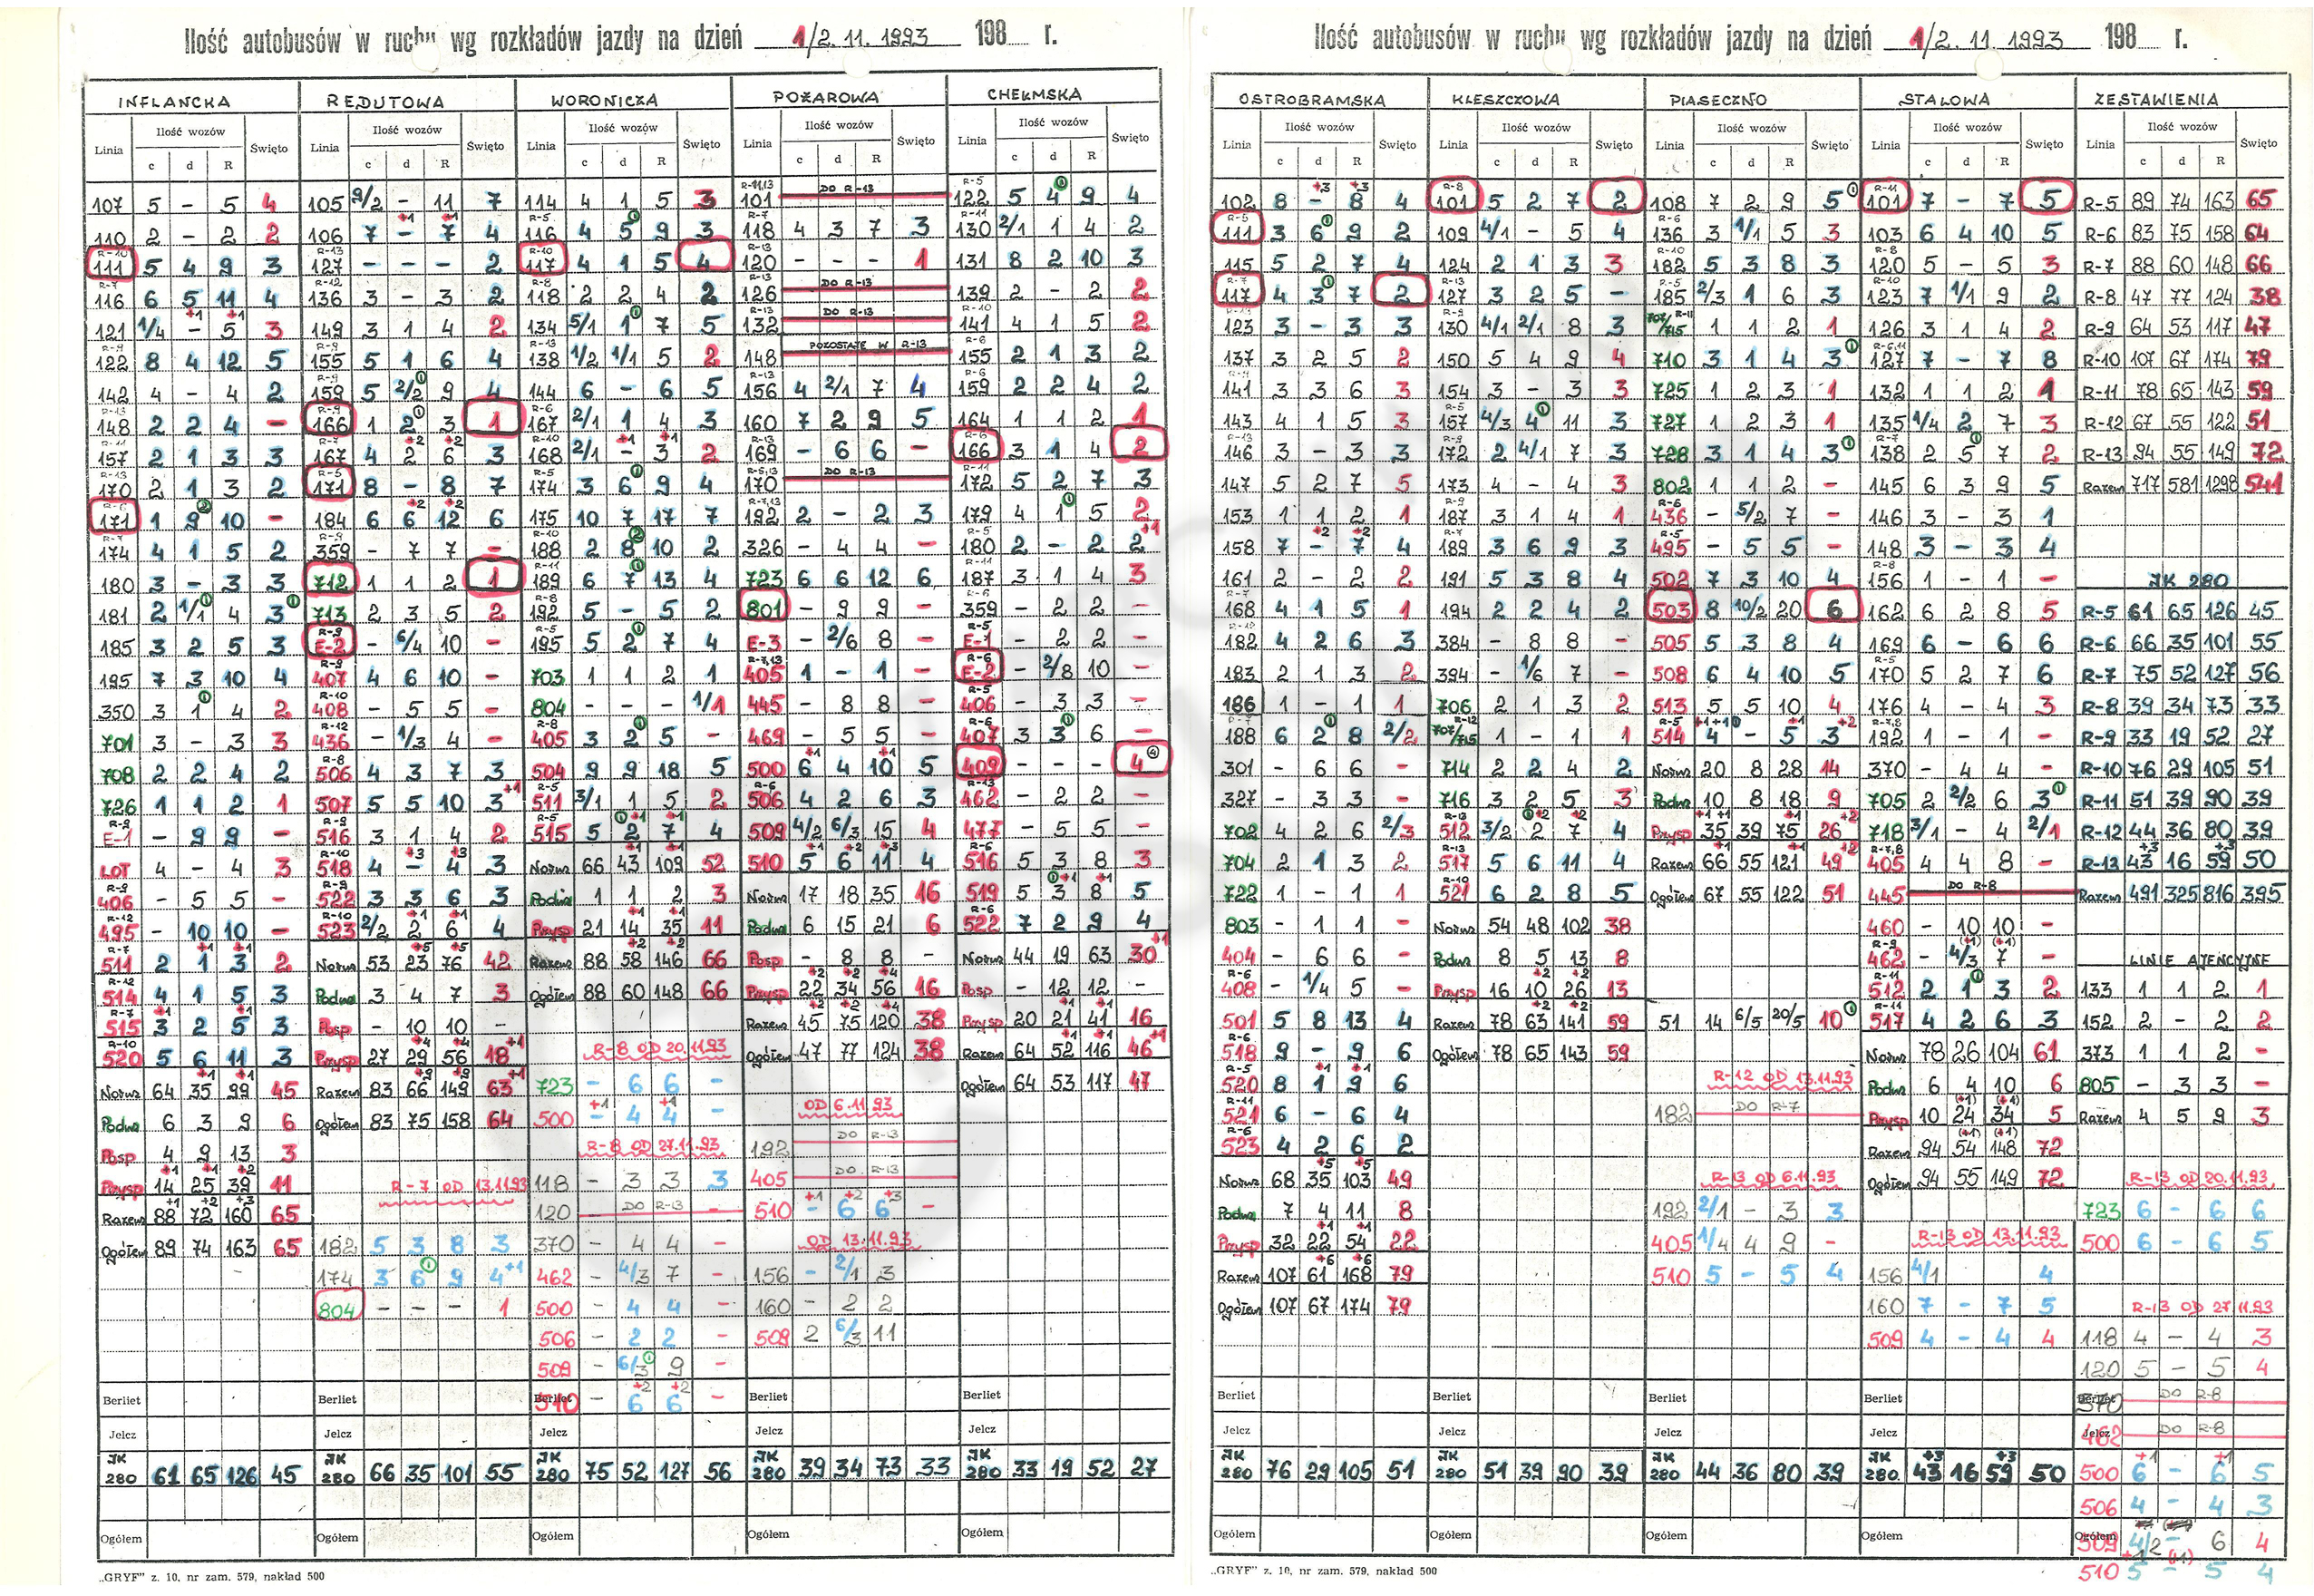 Ilość autobusów w ruchu wg rozkładów jazdy na dzień 1/2.11.1993 198 r.
INFLANCKA
Linia Ilość wozów Święto
c d R
107 5 - 5 4
110 2 - 2 2
R-10
111 5 4 9 3
R-7
116 6 5 11 4
121 1/4 - 5 3
R-9
122 8 4 12 5
142 4 - 4 2
R-13
148 2 2 4 -
R-11
157 2 1 3 3
R-13
170 2 1 3 2
R-6
171 1 9 10 -
R-7
174 4 1 5 2
180 3 - 3 3
181 2 1/1 4 3
185 3 2 5 3
195 7 3 10 4
350 3 1 4 2
701 3 - 3 3
708 2 2 4 2
726 1 1 2 1
R-9
E-1 - 9 9 -
LOT 4 - 4 3
R-9
406 - 5 5 -
R-12
495 - 10 10 -
R-7
511 2 1 3 2
R-12
514 4 1 5 3
R-7
515 3 2 5 3
R-10
520 5 6 11 3
Norm 64 35 99 45
Podm 6 3 9 6
Posp 4 9 13 3
Przysp 14 25 39 11
Razem 88 72 160 65
Ogółem 89 74 163 65
Berliet
Jelcz
JK 280 61 65 126 45
Ogółem
REDUTOWA
Linia Ilość wozów Święto
c d R
105 9/2 - 11 7
106 7 - 7 4
R-13
127 - - - 2
R-12
136 3 - 3 2
149 3 1 4 2
R-9
155 5 1 6 4
R-9
159 5 2/2 9 4
R-9
166 1 2 3 1
R-7
167 4 2 6 3
R-5
171 8 - 8 7
184 6 6 12 6
R-9
359 - 7 7 -
712 1 1 2 1
713 2 3 5 2
R-9
E-2 - 6/4 10 -
R-9
407 4 6 10 -
R-10
408 - 5 5 -
R-12
436 - 1/3 4 -
R-8
506 4 3 7 3
507 5 5 10 3
R-9
516 3 1 4 2
R-10
518 4 - 4 3
R-9
522 3 3 6 3
R-10
523 2/2 2 6 4
Norm 53 23 76 42
Podm 3 4 7 3
Posp - 10 10 -
Przysp 27 29 56 18
Razem 83 66 149 63
Ogółem 83 75 158 64
R-7 OD 13.11.93
182 5 3 8 3
174 3 6 9 4
804 - - - 1
Berliet
Jelcz
JK 280 66 35 101 55
Ogółem
WORONICZA
Linia Ilość wozów Święto
c d R
114 4 1 5 3
R-5
116 4 5 9 3
R-10
117 4 1 5 4
R-8
118 2 2 4 2
134 5/1 1 7 5
R-13
138 1/2 1/1 5 2
144 6 - 6 5
R-6
167 2/1 1 4 3
R-10
168 2/1 - 3 2
R-5
174 3 6 9 4
175 10 7 17 7
R-10
188 2 8 10 2
R-11
189 6 7 13 4
R-8
192 5 - 5 2
R-5
195 5 2 7 4
703 1 1 2 1
804 - - - 1/1
R-8
405 3 2 5 -
504 9 9 18 5
R-5
511 3/1 1 5 2
R-5
515 5 2 7 4
Norm 66 43 109 52
Podm 1 1 2 3
Przysp 21 14 35 11
Razem 88 58 146 66
Ogółem 88 60 148 66
R-8 OD 20.11.93
723 - 6 6 -
500 - 4 4 -
R-8 OD 27.11.93
118 - 3 3 3
120 DO R-13 -
370 - 4 4 -
462 - 4/3 7 -
500 - 4 4 -
506 - 2 2 -
509 - 6/3 9 -
510 - 6 6 -
Berliet
Jelcz
JK 280 75 52 127 56
Ogółem
POŻAROWA
Linia Ilość wozów Święto
c d R
R-11,13
101 DO R-13
R-7
118 4 3 7 3
R-13
120 - - - 1
R-13
126 DO R-13
R-13
132 DO R-13
148 POZOSTAJE W R-13
R-13
156 4 2/1 7 4
160 7 2 9 5
R-13
169 - 6 6 -
R-5,13
170 DO R-13
R-7,13
192 2 - 2 3
326 - 4 4 -
723 6 6 12 6
801 - 9 9 -
E-3 - 2/6 8 -
R-7,13
405 1 - 1 -
445 - 8 8 -
469 - 5 5 -
500 6 4 10 5
R-6
506 4 2 6 3
509 4/2 6/3 15 4
510 5 6 11 4
Norm 17 18 35 16
Podm 6 15 21 6
Posp - 8 8 -
Przysp 22 34 56 16
Razem 45 75 120 38
Ogółem 47 77 124 38
OD 6.11.93
192 DO R-13
405 DO R-13
510 - 6 6 -
OD 13.11.93
156 - 2/1 3
160 - 2 2
509 2 6/3 11
Berliet
Jelcz
JK 280 39 34 73 33
Ogółem
CHEŁMSKA
Linia Ilość wozów Święto
c d R
R-5
122 5 4 9 4
R-11
130 2/1 1 4 2
131 8 2 10 3
139 2 - 2 2
R-10
141 4 1 5 2
R-6
155 2 1 3 2
R-6
159 2 2 4 2
164 1 1 2 1
R-6
166 3 1 4 2
R-11
172 5 2 7 3
179 4 1 5 2
R-5
180 2 - 2 2
R-11
187 3 1 4 3
R-6
359 - 2 2 -
R-5
E-1 - 2 2 -
R-6
E-2 - 2/8 10 -
R-5
406 - 3 3 -
R-6
407 3 3 6 -
409 - - - 4
R-13
462 - 2 2 -
477 - 5 5 -
R-6
516 5 3 8 3
519 5 3 8 5
R-6
522 7 2 9 4
Norm 44 19 63 30
Posp - 12 12 -
Przysp 20 21 41 16
Razem 64 52 116 46
Ogółem 64 53 117 47
Berliet
Jelcz
JK 280 33 19 52 27
Ogółem
„GRYF” z. 10, nr zam. 579, nakład 500
Ilość autobusów w ruchu wg rozkładów jazdy na dzień 1/2.11.1993 198 r.
OSTROBRAMSKA
Linia Ilość wozów Święto
c d R
102 8 - 8 4
R-5
111 3 6 9 2
115 5 2 7 4
R-7
117 4 3 7 2
123 3 - 3 3
137 3 2 5 2
R-9
141 3 3 6 3
143 4 1 5 3
R-13
146 3 - 3 3
147 5 2 7 5
153 1 1 2 1
158 7 - 7 4
161 2 - 2 2
R-7
168 4 1 5 1
R-12
182 4 2 6 3
183 2 1 3 2
186 1 - 1 1
R-7
188 6 2 8 2/2
301 - 6 6 -
327 - 3 3 -
702 4 2 6 2/3
704 2 1 3 2
722 1 - 1 1
803 - 1 1 -
404 - 6 6 -
R-6
408 - 1/4 5 -
501 5 8 13 4
R-6
518 9 - 9 6
R-5
520 8 1 9 6
R-11
521 6 - 6 4
R-6
523 4 2 6 2
Norm 68 35 103 49
Podm 7 4 11 8
Przysp 32 22 54 22
Razem 107 61 168 79
Ogółem 107 67 174 79
JK 280 76 29 105 51
Ogółem
KLESZCZOWA
Linia Ilość wozów Święto
c d R
R-8
101 5 2 7 2
109 4/1 - 5 4
124 2 1 3 3
R-13
127 3 2 5 -
R-9
130 4/1 2/1 8 3
150 5 4 9 4
154 3 - 3 3
R-5
157 4/3 4 11 3
R-9
172 2 4/1 7 3
173 4 - 4 3
R-9
187 3 1 4 1
R-7
189 3 6 9 3
191 5 3 8 4
194 2 2 4 2
384 - 8 8 -
394 - 1/6 7 -
706 2 1 3 2
R-12
707/715 1 - 1 1
714 2 2 4 2
716 3 2 5 3
R-13
512 3/2 2 7 4
R-13
517 5 6 11 4
R-10
521 6 2 8 5
Norm 54 48 102 38
Podm 8 5 13 8
Przysp 16 10 26 13
Razem 78 63 141 59
Ogółem 78 65 143 59
Berliet
Jelcz
JK 280 51 39 90 39
Ogółem
PIASECZNO
Linia Ilość wozów Święto
c d R
108 7 2 9 5
R-6
136 3 1/1 5 3
R-10
182 5 3 8 3
R-5
185 2/3 1 6 3
R-11
707/715 1 1 2 1
710 3 1 4 3
725 1 2 3 1
727 1 2 3 1
728 3 1 4 3
802 1 1 2 -
R-6
436 - 5/2 7 -
R-5
495 - 5 5 -
502 7 3 10 4
503 8 10/2 20 6
505 5 3 8 4
508 6 4 10 5
513 5 5 10 4
R-5
514 4 - 5 3
Norm 20 8 28 14
Podm 10 8 18 9
Przysp 35 39 75 26
Razem 66 55 121 49
Ogółem 67 55 122 51
51 14 6/5 20/5 10
R-12 OD 13.11.93
182 DO R-7
R-13 OD 6.11.93
192 2/1 - 3 3
405 1/4 4 9 -
510 5 - 5 4
Berliet
Jelcz
JK 280 44 36 80 39
Ogółem
STALOWA
Linia Ilość wozów Święto
c d R
R-11
101 7 - 7 5
103 6 4 10 5
R-8
120 5 - 5 3
R-10
123 7 1/1 9 2
126 3 1 4 2
R-6,11
127 7 - 7 8
132 1 1 2 1
135 1/4 2 7 3
R-7
138 2 5 7 2
145 6 3 9 5
146 3 - 3 1
148 3 - 3 4
R-8
156 1 - 1 -
162 6 2 8 5
169 6 - 6 6
R-5
170 5 2 7 6
176 4 - 4 3
R-7,8
192 1 - 1 -
370 - 4 4 -
705 2 2/2 6 3
718 3/1 - 4 2/1
R-7,8
405 4 4 8 -
445 DO R-8
460 - 10 10 -
R-9
462 - 4/3 7 -
R-11
512 2 1 3 2
R-11
517 4 2 6 3
Norm 78 26 104 61
Podm 6 4 10 6
Przysp 10 24 34 5
Razem 94 54 148 72
Ogółem 94 55 149 72
R-13 OD 13.11.93
156 4/1 4
160 7 - 7 5
509 4 - 4 4
Berliet
Jelcz
JK 280 43 16 59 50
Ogółem
ZESTAWIENIA
Linia Ilość wozów Święto
c d R
R-5 89 74 163 65
R-6 83 75 158 64
R-7 88 60 148 66
R-8 47 77 124 38
R-9 64 53 117 47
R-10 107 67 174 79
R-11 78 65 143 59
R-12 67 55 122 51
R-13 94 55 149 72
Razem 717 581 1298 541
JK 280
R-5 61 65 126 45
R-6 66 35 101 55
R-7 75 52 127 56
R-8 39 34 73 33
R-9 33 19 52 27
R-10 76 29 105 51
R-11 51 39 90 39
R-12 44 36 80 39
R-13 43 16 59 50
Razem 491 325 816 395
LINIE AJENCYJNE
133 1 1 2 1
152 2 - 2 2
373 1 1 2 -
805 - 3 3 -
Razem 4 5 9 3
R-13 OD 20.11.93
723 6 - 6 6
500 6 - 6 5
R-13 OD 27.11.93
118 4 - 4 3
120 5 - 5 4
370 DO R-8
462 DO R-8
500 6 - 6 5
506 4 - 4 3
509 4/2 - 6 4
510 5 - 5 4
„GRYF” z. 10, nr zam. 579, nakład 500